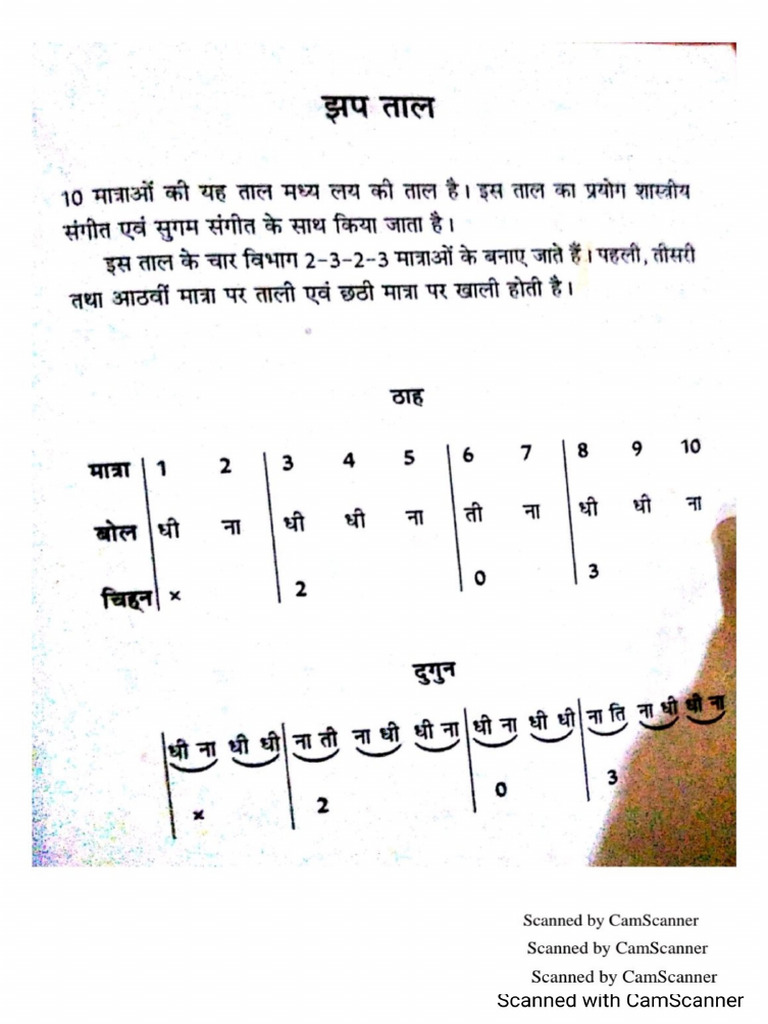 झप ताल
10 मात्राओं की यह ताल मध्य लय की ताल है। इस ताल का प्रयोग शास्त्रीय
संगीत एवं सुगम संगीत के साथ किया जाता है।
इस ताल के चार विभाग 2-3-2-3 मात्राओं के बनाए जाते हैं। पहली, तीसरी
तथा आठवीं मात्रा पर ताली एवं छठी मात्रा पर खाली होती है।
ठाह
मात्रा | 1 2 | 3 4 5 | 6 7 | 8 9 10
बोल | धी ना | धी धी ना | ती ना | धी धी ना
चिह्न | × | 2 | 0 | 3
दुगुन
| धी ना धी धी | ना ती ना धी धी ना | धी ना धी धी | ना ति ना धी धी ना
| × | 2 | 0 | 3
Scanned by CamScanner
Scanned by CamScanner
Scanned by CamScanner
Scanned with CamScanner